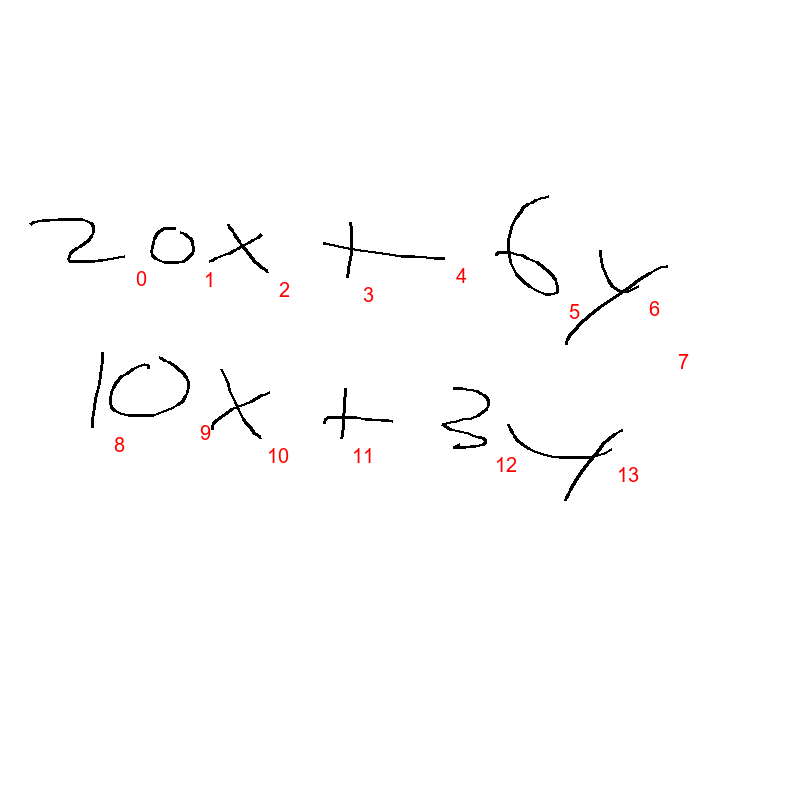 20x + 6y
0 1 2 3 4 5 6 7
10x + 3y
8 9 10 11 12 13